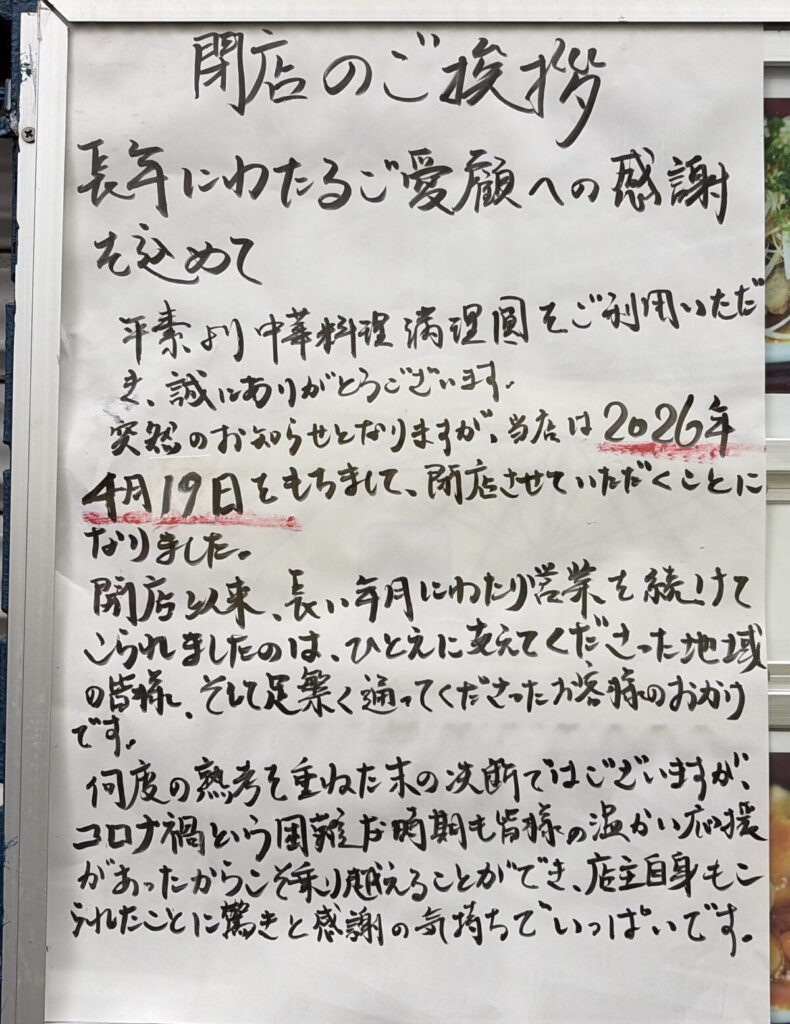 閉店のご挨拶
長年にわたるご愛顧への感謝
を込めて
平素より中華料理満理圓をご利用いただ
き、誠にありがとうございます。
突然のお知らせとなりますが、当店は2026年
4月19日をもちまして、閉店させていただくことに
なりました。
開店以来、長い年月にわたり営業を続けて
こられましたのは、ひとえに支えてくださった地域
の皆様、そして足繁く通ってくださったお客様のおかげ
です。
何度の熟考を重ねた末の決断ではございますが、
コロナ禍という困難な時期も皆様の温かい応援
があったからこそ乗り越えることができ、店主自身もこ
られたことに驚きと感謝の気持ちでいっぱいです。